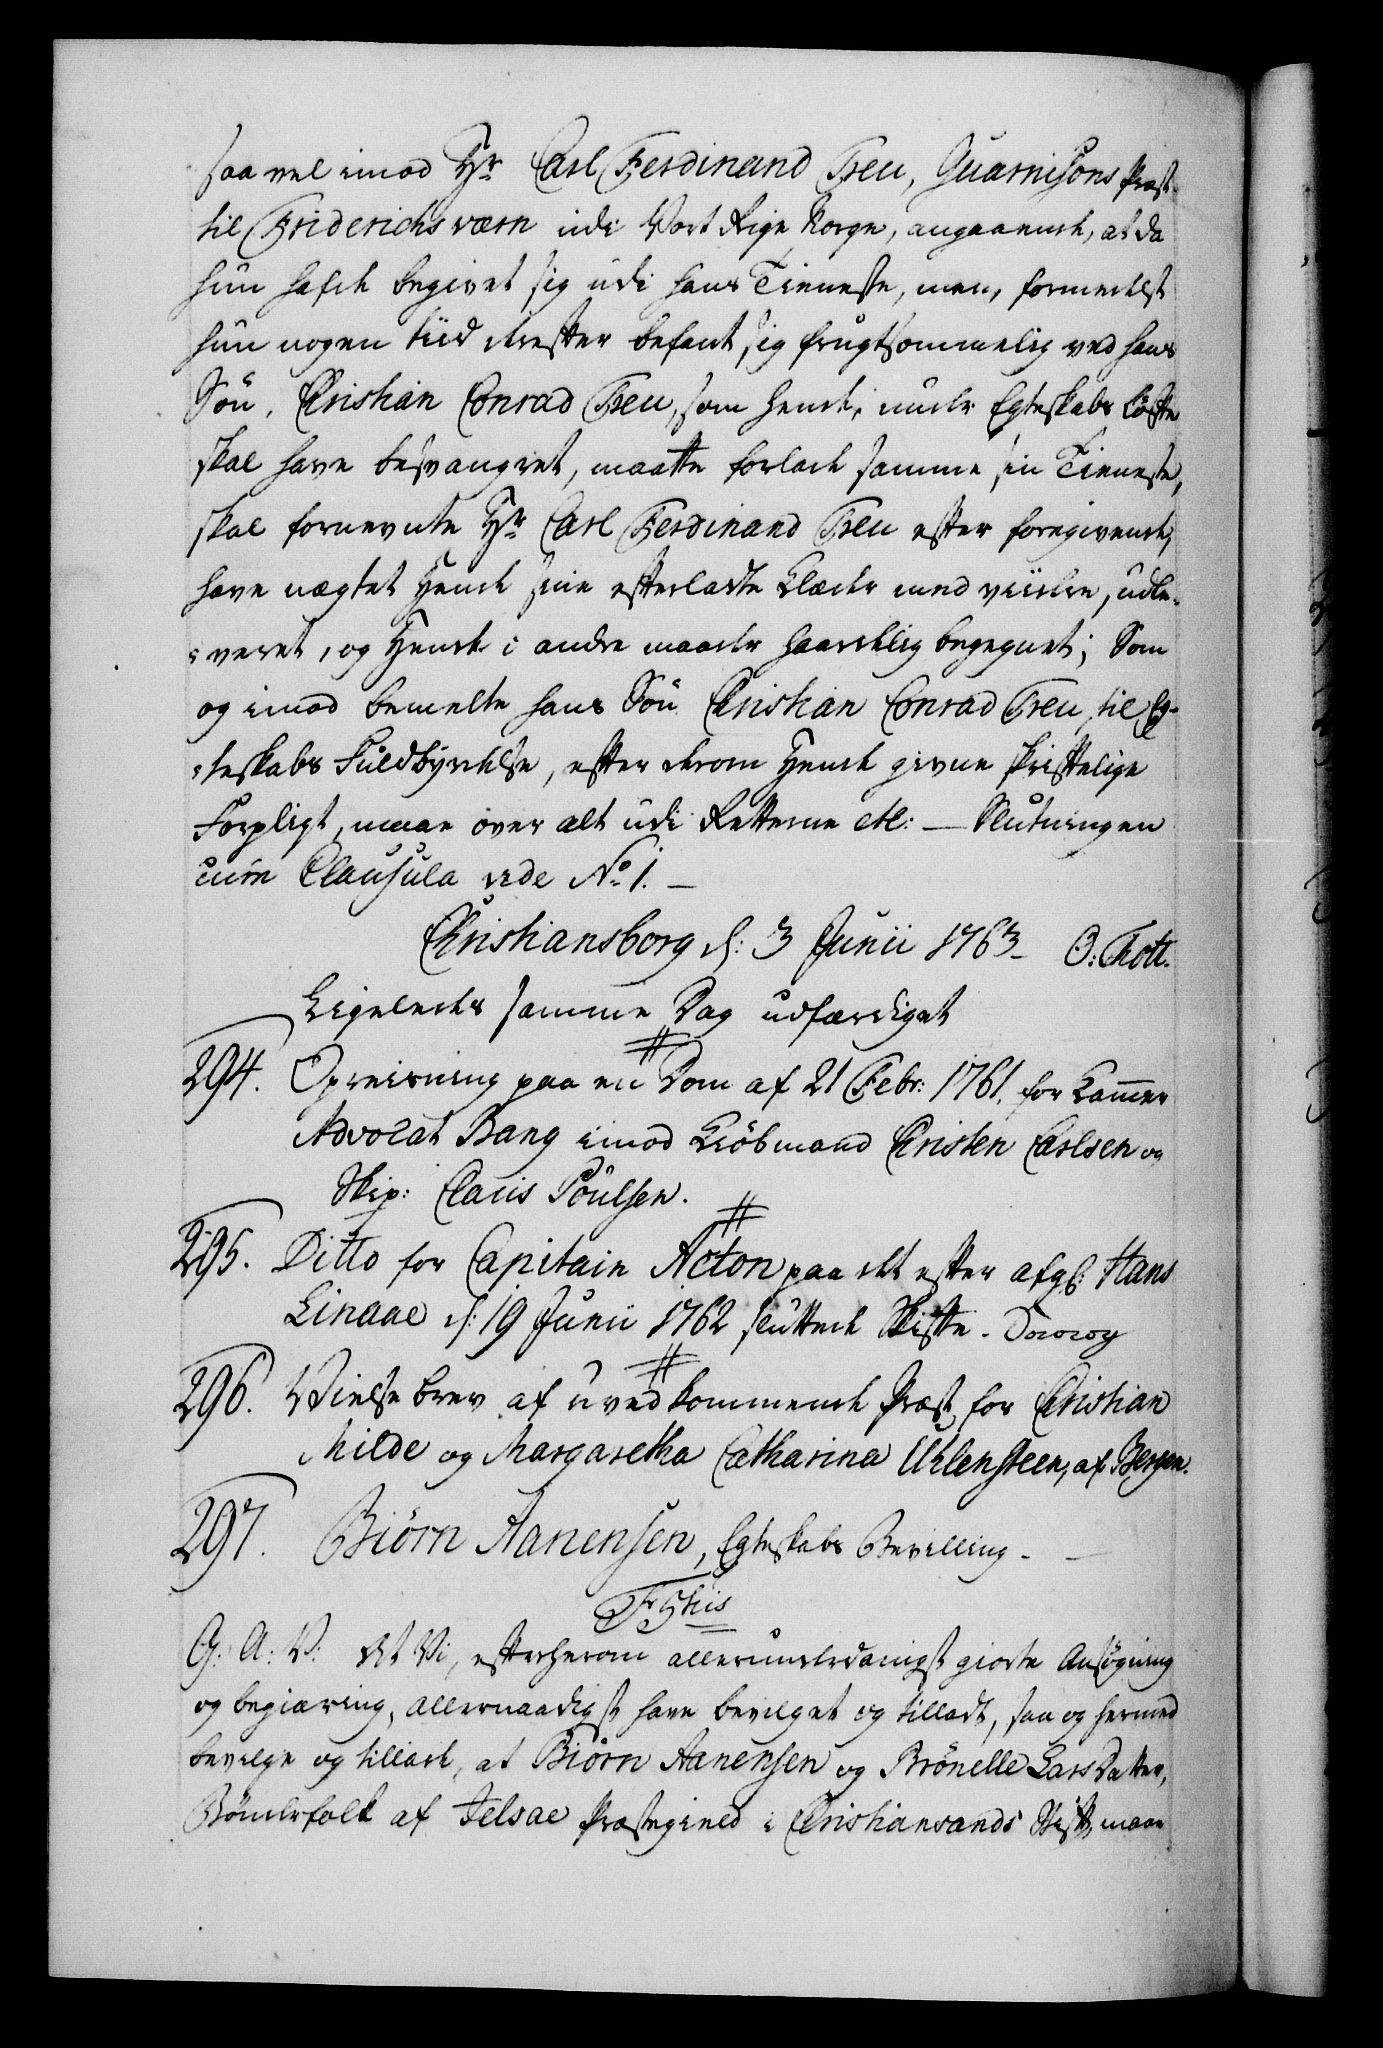 saa vel imod Hr. Carl Ferdinand Treu, Guarnisons Præst
til Friderichsværn udi Vort Rige Norge, angaaende, at da
hun hafde begivet sig udi hans Tieneste, men, formedelst
hun nogen tiid derefter befant sig frugtsommelig ved hans
Søn, Christian Conrad Treu, som hende, under Egteskabs Løfte
skal have besvangret, maatte forlade samme sin Tieneste,
skal fornevnte Hr. Carl Ferdinand Treu efter foregivende,
have nægtet Hende sine efterladte Klæder med viidere, udle-
-veret, og Hende i andre maader haardelig begegnet; Som
og imod bemelte hans Søn Christian Conrad Treu, til Eg-
-teskabs Fuldbyrdelse, efter derom Hende givne skriftelige
Forpligt, maae over alt udi Retterne etc: — Slutningen
cum Clausula vide No. 1. —
Christiansborg d: 3 Junii 1763 — O: Thott.
Ligeledes samme Dag udfærdiget
294. Opreisning paa en Dom af 21 Febr: 1761. for Cammer
Advocat Bang imod Kiøbmand Christen Carlsen og
Skip: Claus Poulsen.
295. Ditto for Capitain Acton paa det efter afgl: Hans
Linaae d: 19 Junii 1762 sluttede Skifte.
296. Vielse brev af uvedkommende Præst for Christian
Milde og Margaretha Catharina Uhlensteen, af Bergen.
297. Biørn Aanensen, Egteskabs Bevilling. —
Fr: 5tiis
G: A: V: At Vi, efter herom allerunderdanigst giorte Ansøgning
og begiæring, allernaadigst have bevilget og tilladt, saa og hermed
bevilge og tillade, at Biørn Aanensen og Brønelle Lars Datter,
Bønderfolk af Jelsae Præstegield i Christiansands Stift, maae